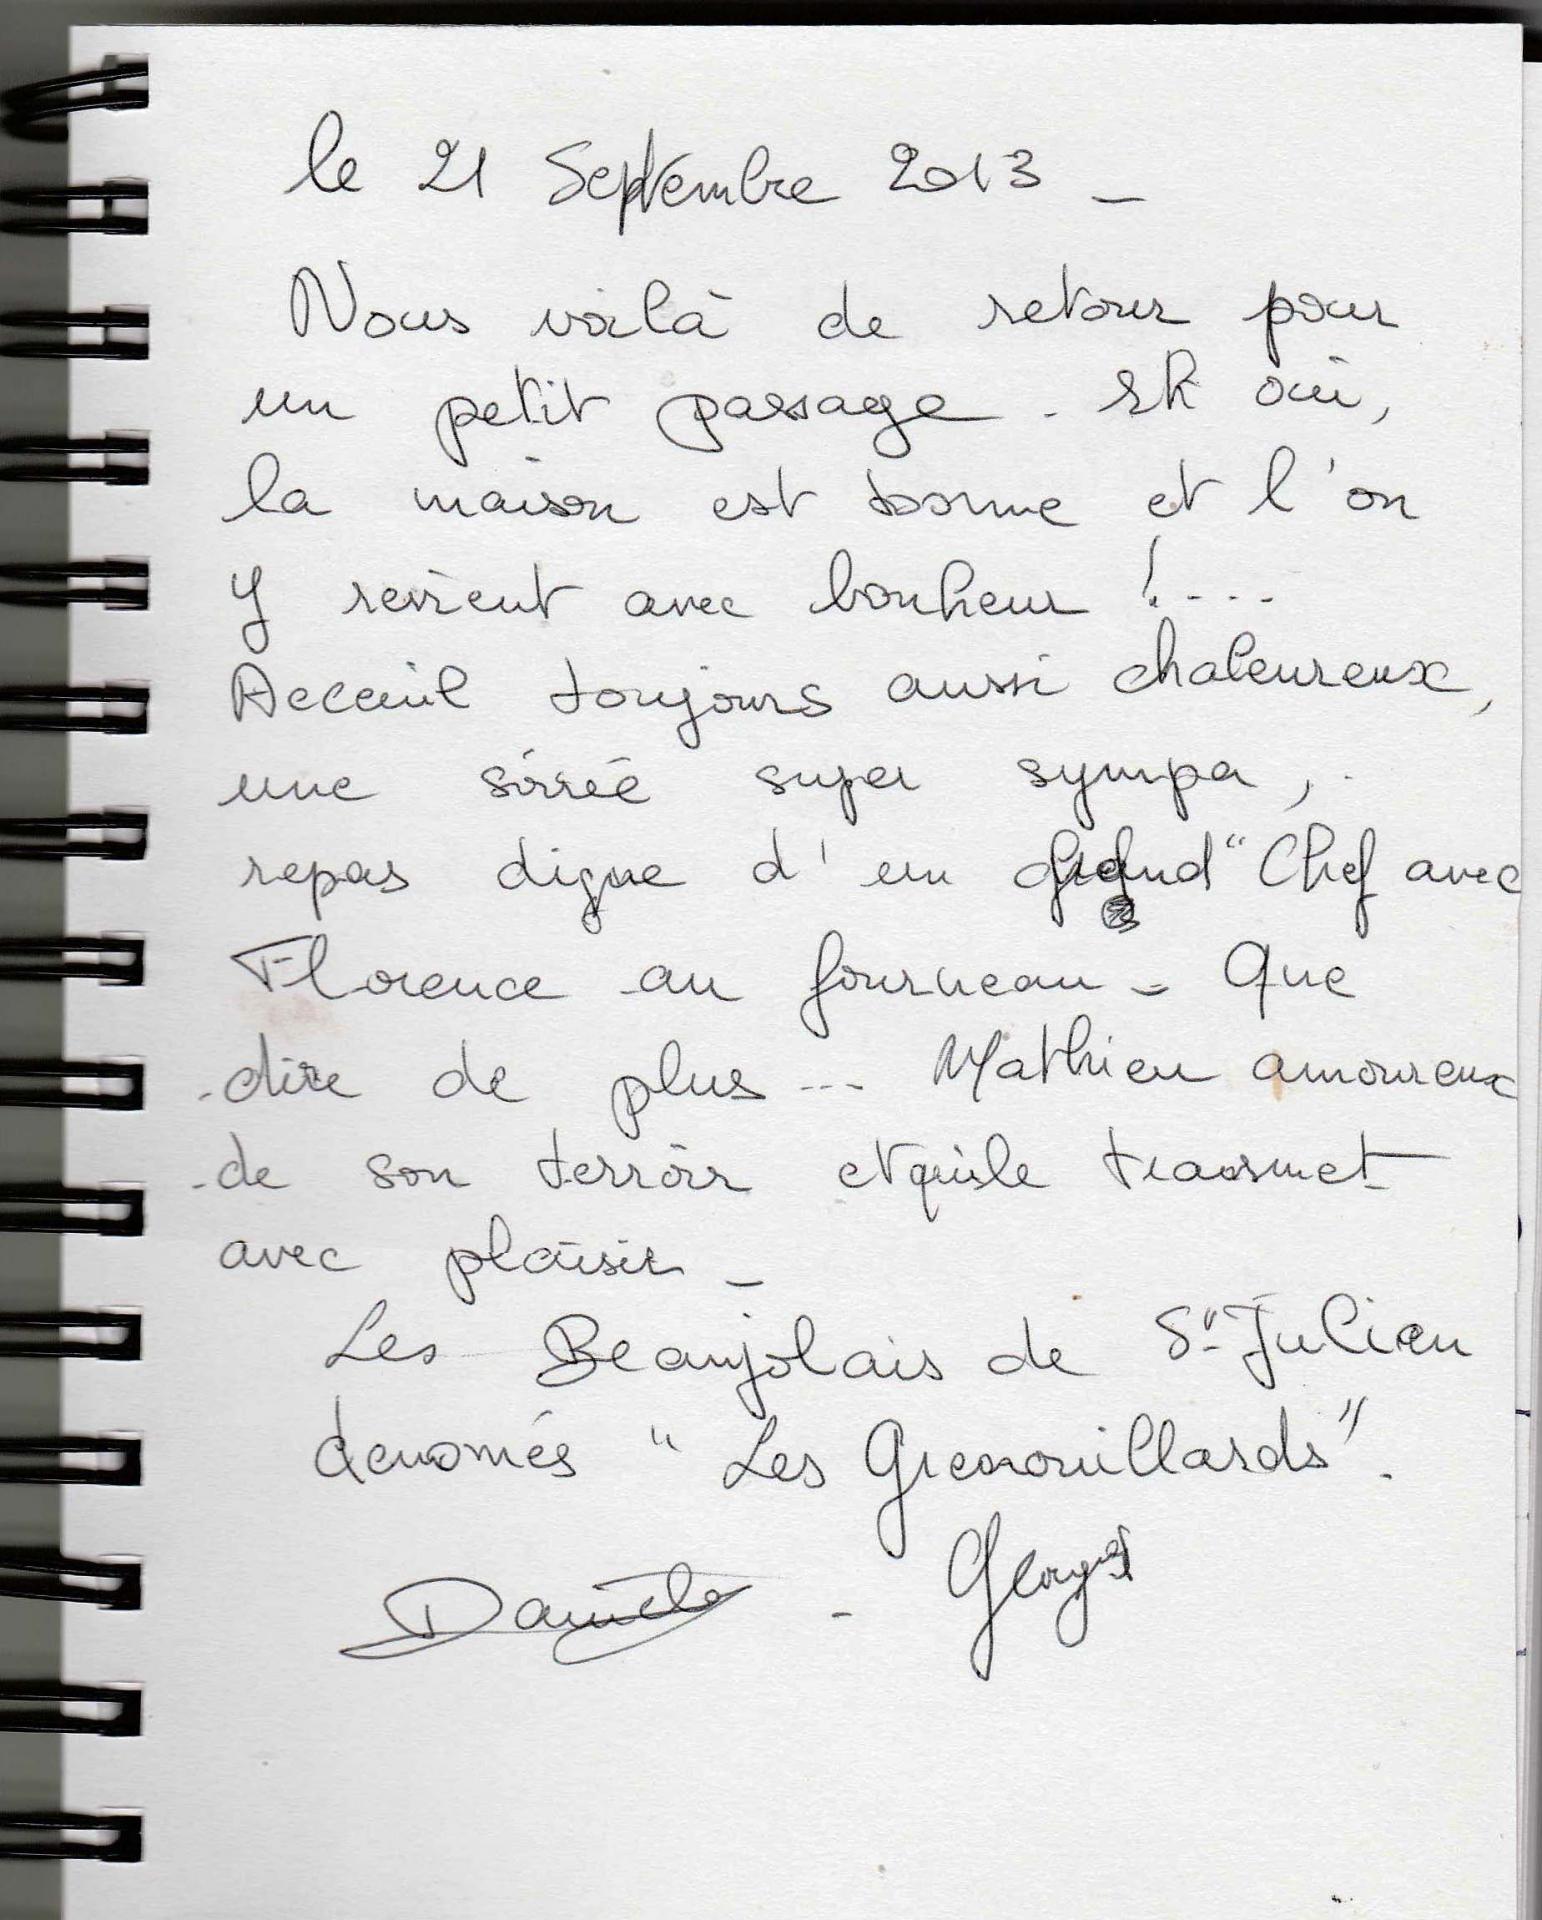 le 21 Septembre 2013 _
Nous voilà de retour pour
un petit passage. Eh oui,
la maison est bonne et l'on
y revient avec bonheur !....
Acceuil toujours aussi chaleureux,
une soirée super sympa,
repas digne d'un Grand" Chef avec
Florence au fourneau - Que
dire de plus... Mathieu amoureux
de son terroir et qui le transmet
avec plaisir _
Les Beaujolais de St Julien
denomés "Les Grenouillards".
Danièle - Georges